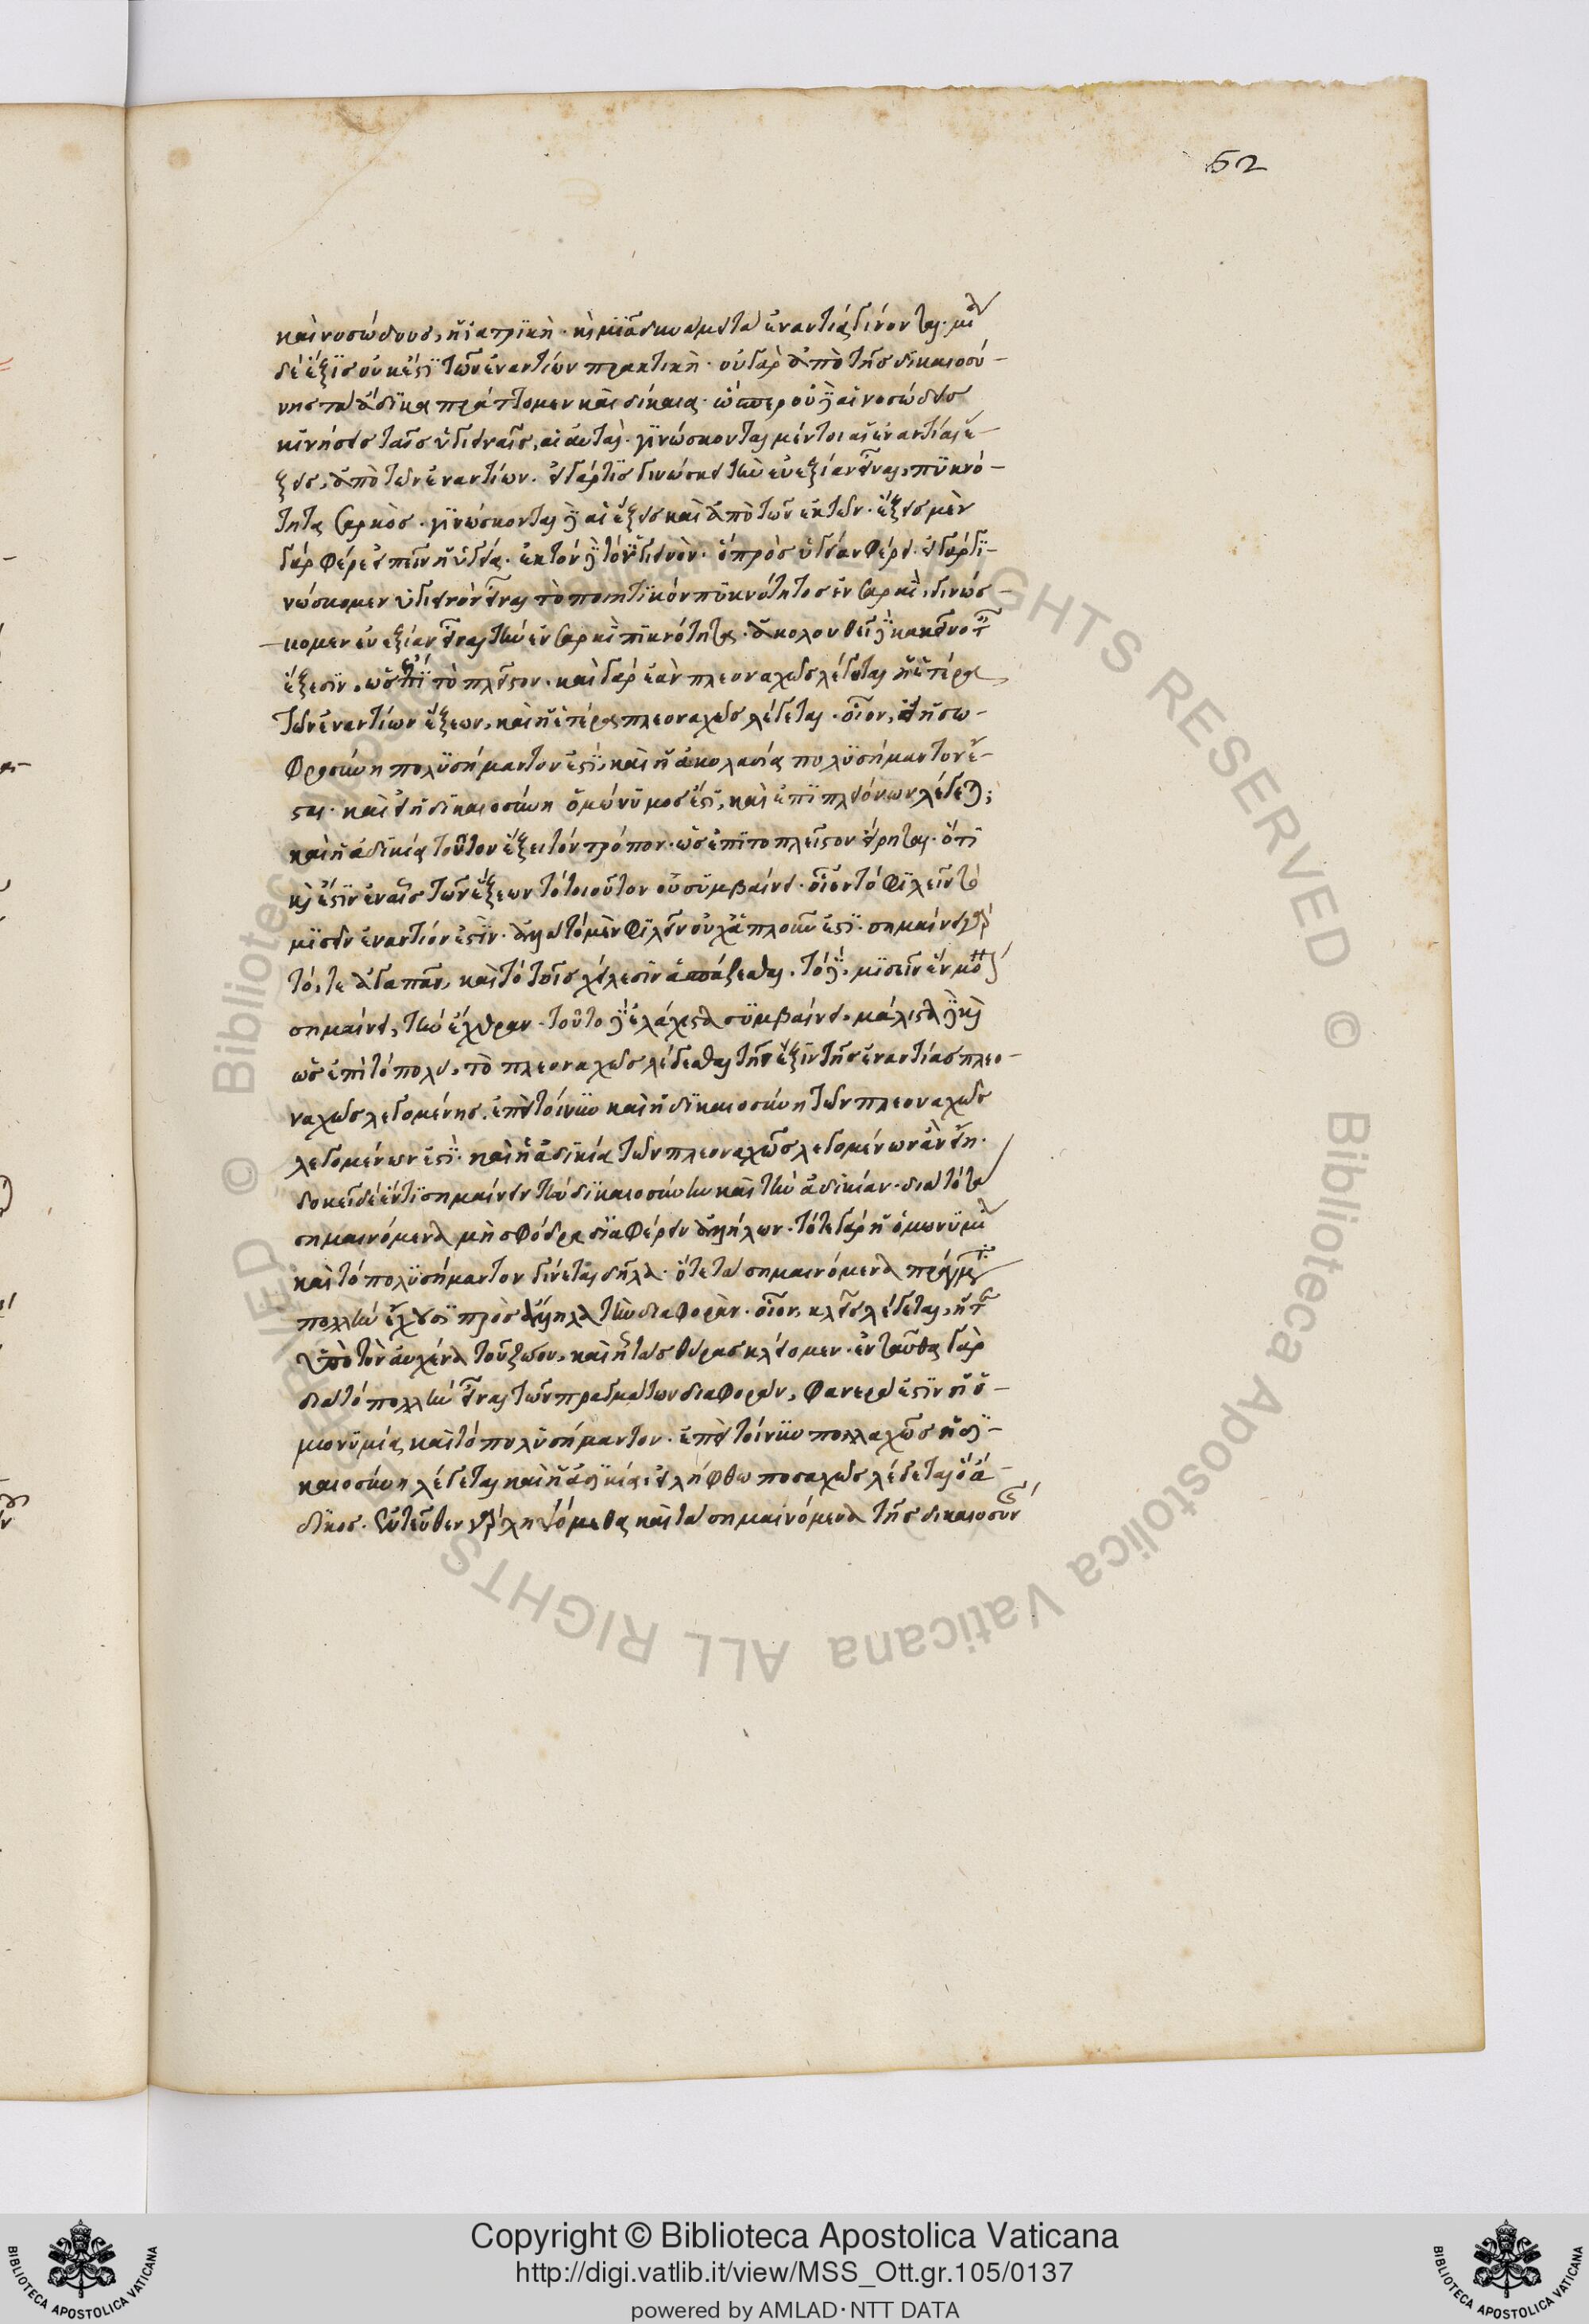 52
καὶ νοσώδους, ἡ ἰατρικὴ. καὶ μιᾶς δυνάμει τὰ ἐναντία γίνονται. μία
δὲ ἕξις οὐκ ἔστι τῶν ἐναντίων πρακτικὴ. οὐ γὰρ ἀπὸ τῆς δικαιοσύ-
νης τὰ ἄδικα πράττομεν καὶ δίκαια. ὥσπερ οὐδὲ αἱ νοσώδεις
κινήσεις ταῖς ὑγιειναῖς, αἱ αὐταὶ. γινώσκονται μέντοι αἱ ἐναντίαι ἕ-
ξεις, ἀπὸ τῶν ἐναντίων. εἰ γάρ τις γινώσκει τὴν εὐεξίαν εἶναι, πυκνό-
τητα σαρκὸς. γινώσκονται δὲ αἱ ἕξεις καὶ ἀπὸ τῶν ἑκτῶν. ἕξεις μὲν
γὰρ φέρε εἰπεῖν ἡ ὑγεία. ἑκτὸν δὲ τὸ ὑγιεινὸν. ὃ πρὸς ὑγείαν φέρει. εἰ γὰρ γι-
νώσκομεν ὑγιεινὸν εἶναι τὸ ποιητικὸν πυκνότητος ἐν σαρκὶ, γινώσ-
κομεν εὐεξίαν εἶναι τὴν ἐν σαρκὶ πυκνότητα. ἀκολουθεῖ δὲ κἀκεῖνο ταῖς
ἕξεσιν, ὡς ἐπὶ τὸ πλεῖστον. καὶ γὰρ ἐὰν πλεοναχῶς λέγεται ἡ ἑτέρα
τῶν ἐναντίων ἕξεων, καὶ ἡ ἑτέρα πλεοναχῶς λέγεται. οἷον, εἰ ἡ σω-
φροσύνη πολυσήμαντον ἐστί, καὶ ἡ ἀκολασία πολυσήμαντον ἔ-
σται. καὶ εἰ ἡ δικαιοσύνη ὁμώνυμος ἐστὶ, καὶ ἐπὶ πλειόνων λέγεται;
καὶ ἡ ἀδικία τοῦτον ἕξει τὸν τρόπον. ὡς ἐπὶ το πλεῖστον εἴρηται. ὅτι
καὶ ἔστιν ἐν αἷς τῶν ἕξεων τὸ τοιοῦτον οὐ συμβαίνει. οἷον τὸ φιλεῖν τῷ
μισεῖν ἐναντίον ἐστὶν. ἀλλὰ τὸ μὲν φιλεῖν οὐχ ἁπλοῦν ἐστὶ. σημαίνει γὰρ
τό, τε ἀγαπᾶν, καὶ τὸ τοῖς χείλεσιν ἀσπάζεσθαι. τὸ δὲ, μισεῖν ἓν μόνον
σημαίνει, τὴν ἔχθραν. τοῦτο δὲ ἐλάχιστα συμβαίνει. μάλιστα δὲ καὶ
ὡς ἐπὶ τὸ πολὺ, τὸ πλεοναχῶς λέγεσθαι τὴν ἕξιν τῆς ἐναντίας πλεο-
ναχῶς λεγομένης. ἐπεὶ τοίνυν καὶ ἡ δικαιοσύνη τῶν πλεοναχῶς
λεγομένων ἐστὶ. καὶ ἡ ἀδικία τῶν πλεοναχῶς λεγομένων ἂν εἴη.
δοκεῖ δὲ ἕν τι σημαίνειν τὴν δικαιοσύνην καὶ τὴν ἀδικίαν. διὰ τὸ τὰ
σημαινόμενα μὴ σφόδρα διαφέρειν ἀλλήλων. τότε γὰρ ἡ ὁμωνυμία
καὶ τὸ πολυσήμαντον γίνεται δῆλα. ὅτε τὰ σημαινόμενα πράγματα
πολλὴν ἔχουσι πρὸς ἄλληλα τὴν διαφορὰν. οἷον, κλεὶς λέγεται, ἥ τε
ὑπὸ τὸν αὐχένα τοῦ ζώου, καὶ ᾗ τὰς θύρας κλείομεν. ἐνταῦθα γὰρ
διὰ τὸ πολλὴν εἶναι τῶν πραγμάτων διαφορὰν, φανερά ἐστιν ἡ ὁ-
μωνυμία καὶ τὸ πολυσήμαντον. ἐπεὶ τοίνυν πολλαχῶς ἡ δι-
καιοσύνη λέγεται καὶ ἡ ἀδικία, εἰλήφθω ποσαχῶς λέγεται ὁ ἄ-
δικος. ἐντεῦθεν γὰρ ληψόμεθα καὶ τὰ σημαινόμενα τῆς δικαιοσύνης
Copyright © Biblioteca Apostolica Vaticana
http://digi.vatlib.it/view/MSS_Ott.gr.105/0137
powered by AMLAD·NTT DATA